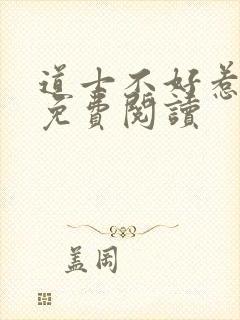 道士不好惹
免費閱讀
盖闵